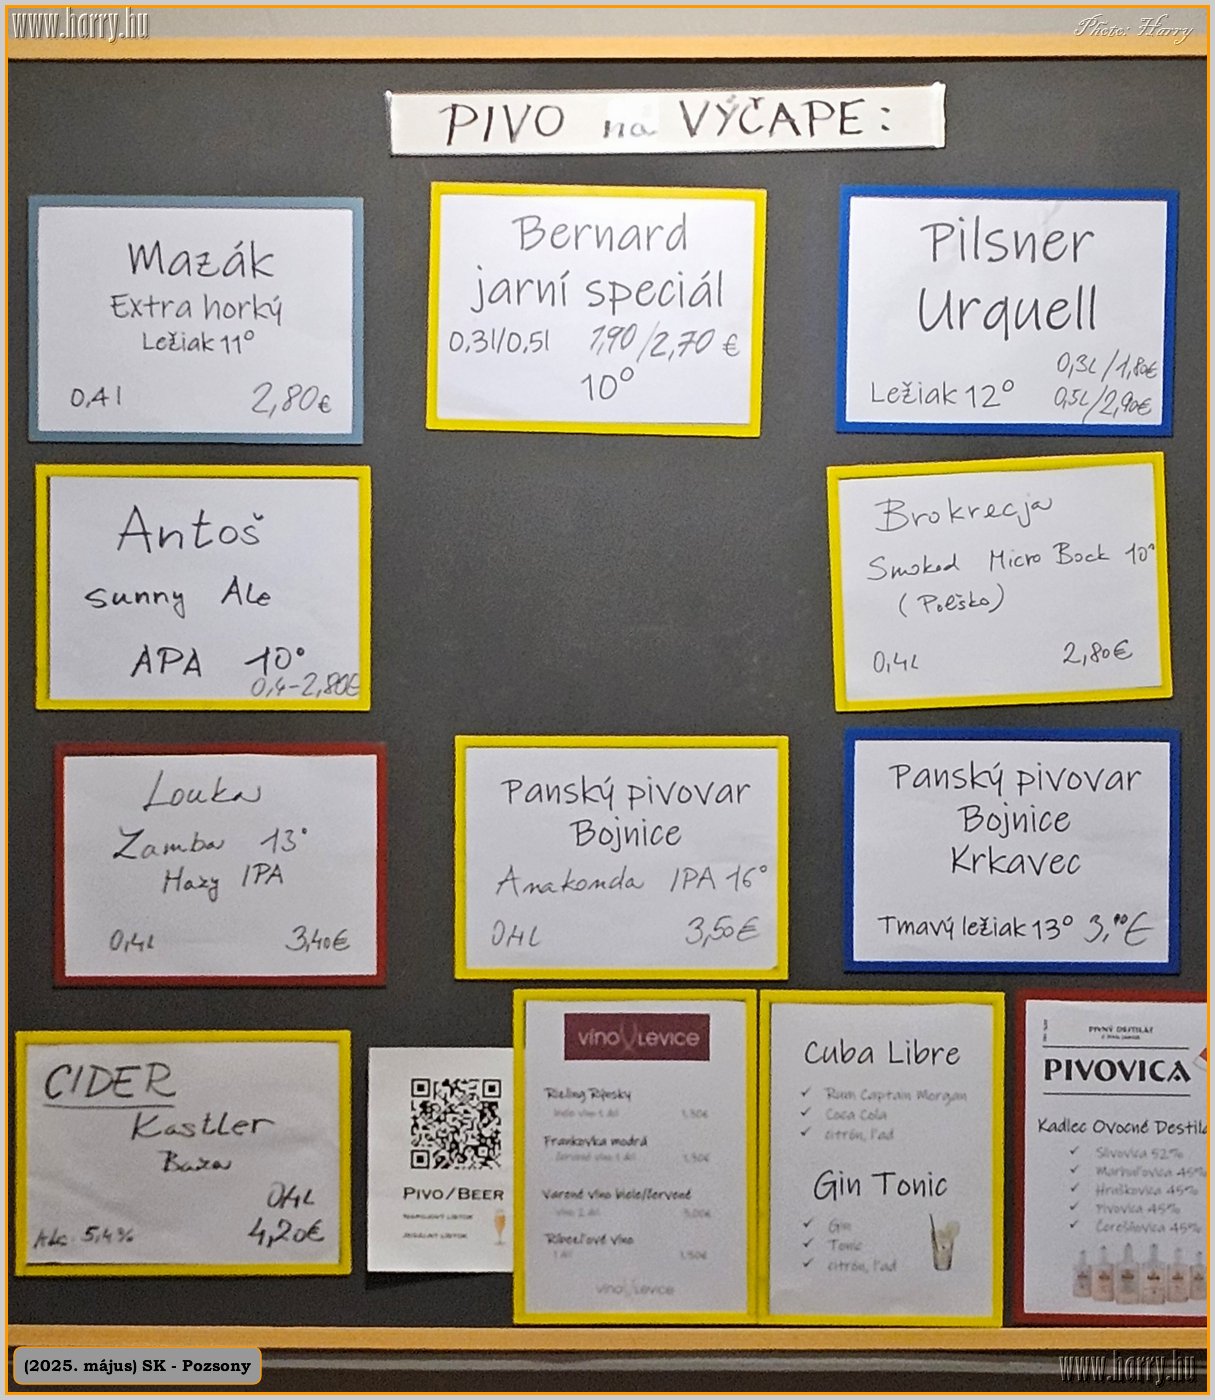 www.harry.hu
Photo: Harry
PIVO na VÝČAPE:
Mazák
Extra horký
Ležiak 11°
0,4 l 2,80€
Bernard
jarní speciál
0,3l/0,5l 1,90/2,70 €
10°
Pilsner
Urquell
0,3L/1,80€
Ležiak 12° 0,5L/2,90€
Antoš
Sunny Ale
APA 10°
0,4-2,80€
Brokrecja
Smoked Micro Bock 10°
(Poľsko)
0,4L 2,80€
Louka
Zamba 13°
Hazy IPA
0,4L 3,40€
Panský pivovar
Bojnice
Anakonda IPA 16°
0,4L 3,50€
Panský pivovar
Bojnice
Krkavec
Tmavý ležiak 13° 3,00€
CIDER
Kastler
Baza
0,4L
Alc. 5,4% 4,20€
PIVO/BEER
NÁPOJOVÝ LÍSTOK
JEDÁLNY LÍSTOK
víno LEVICE
Rizling Rýnsky
biele víno 1 dl 1,50€
Frankovka modrá
červené víno 1 dl 1,50€
Varené víno biele/červené
víno 2 dl 3,00€
Ríbezľové víno
1 dl 1,50€
víno LEVICE
Cuba Libre
✓ Rum Captain Morgan
✓ Coca Cola
✓ citrón, ľad
Gin Tonic
✓ Gin
✓ Tonic
✓ citrón, ľad
PIVNÝ DESTILÁT
PIVOVICA
Kadlec Ovocné Destilá
✓ Slivovica 52%
✓ Marhuľovica 45%
✓ Hruškovica 45%
✓ Pivovica 45%
✓ Čerešňovica 45%
(2025. május) SK - Pozsony
www.harry.hu